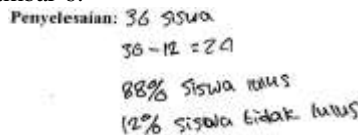 Penyelesaian: 36 siswa
36 - 12 = 24
88% siswa lulus
12% siswa tidak lulus